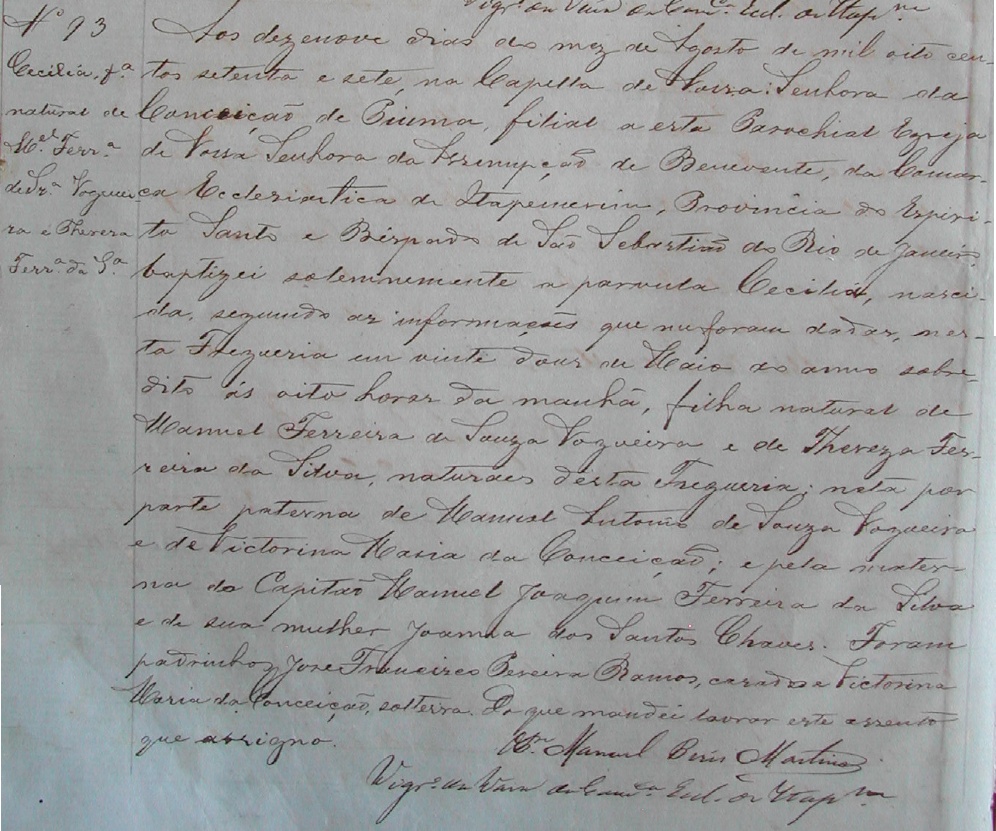 Vigr.o da Vara da Comc.a Ecl. de Itap.m
Nº 93
Cecilia, f.a
natural de
M.el Ferr.a
de Sz.a Noguei
ra e Thereza
Ferr.a da S.a
Aos dezenove dias do mez de Agosto de mil oito cen-
tos setenta e sete, na Capella de Nossa Senhora da
Conceição de Piuma, filial a esta Parochial Egreja
de Nossa Senhora da Assumpção de Benevente, da Comar-
ca Ecclesiastica de Itapemerim, Provincia do Espiri-
to Santo e Bispado de São Sebastião do Rio de Janeiro,
baptizei solemnemente a parvula Cecilia, nasci-
da, segundo as informações que me foram dadas, nes-
ta Freguezia em vinte dous de Maio do anno sobre-
dito ás oito horas da manhã, filha natural de
Manuel Ferreira de Souza Nogueira e de Thereza Fer-
reira da Silva, naturaes desta Freguezia; neta por
parte paterna de Manuel Antonio de Souza Nogueira
e de Victorina Maria da Conceição; e pela mater-
na do Capitão Manuel Joaquim Ferreira da Silva
e de sua mulher Joanna dos Santos Chaves. Foram
padrinhos José Francisco Pereira Ramos, casado e Victorina
Maria da Conceição, solteira. Do que mandei lavrar este assento
que assigno.
Manuel Martins
Vigr.o da Vara da Comc.a Ecl. de Itap.m